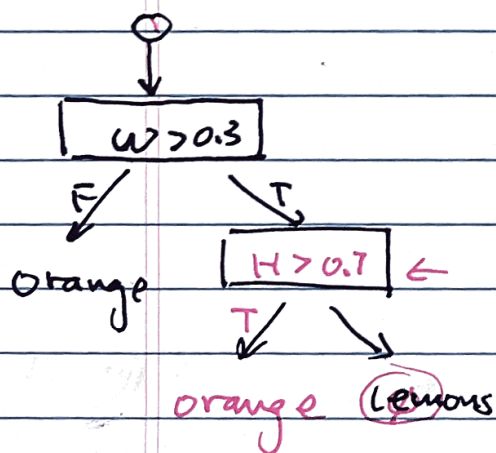 W > 0.3
F T
orange
H > 0.7 ←
T
orange Lemons